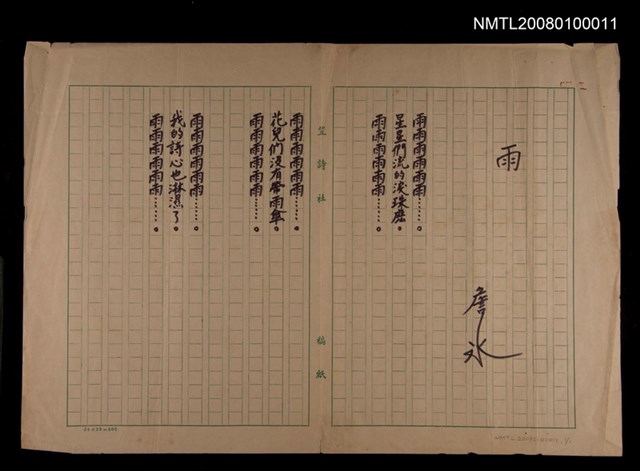 NMTL20080100011
雨
詹冰
雨雨雨雨雨雨……。
星星們流的淚珠麼。
雨雨雨雨雨雨……。
雨雨雨雨雨雨……。
花兒們沒有帶雨傘。
雨雨雨雨雨雨……。
雨雨雨雨雨雨……。
我的詩心也淋濕了。
雨雨雨雨雨雨……。
笠詩社
稿紙